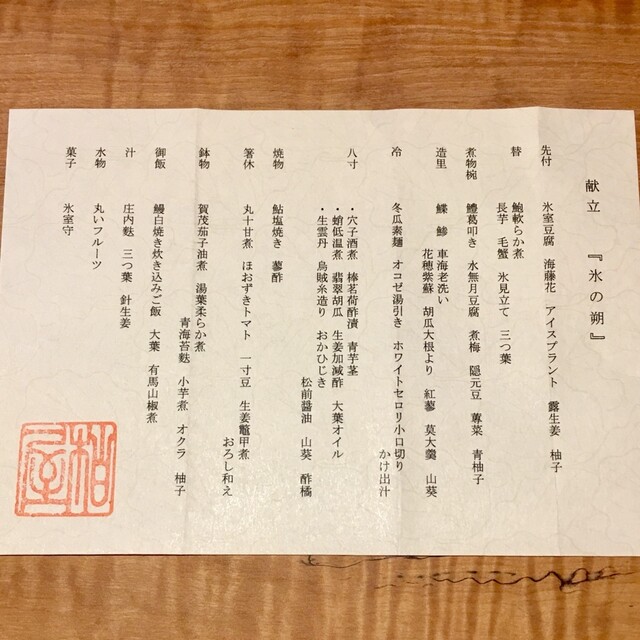 献立 『氷の朔』
先付 氷室豆腐 海藤花 アイスプラント 露生姜 柚子
替 鮑軟らか煮
長芋 毛蟹 氷見立て 三つ葉
煮物椀 鱧葛叩き 水無月豆腐 煮梅 隠元豆 蓴菜 青柚子
造里 鰈 鯵 車海老洗い
花穂紫蘇 胡瓜大根より 紅蓼 莫大羹 山葵
冷 冬瓜素麺 オコゼ湯引き ホワイトセロリ小口切り
かけ出汁
八寸 ・穴子酒煮 棒茗荷酢漬 青芋茎
・蛸低温煮 翡翠胡瓜 生姜加減酢 大葉オイル
・生雲丹 烏賊糸造り おかひじき
松前醤油 山葵 酢橘
焼物 鮎塩焼き 蓼酢
箸休 丸十甘煮 ほおずきトマト 一寸豆 生姜鼈甲煮
おろし和え
鉢物 賀茂茄子油煮 湯葉柔らか煮
青海苔麩 小芋煮 オクラ 柚子
御飯 鰻白焼き炊き込みご飯 大葉 有馬山椒煮
汁 庄内麩 三つ葉 針生姜
水物 丸いフルーツ
菓子 氷室守